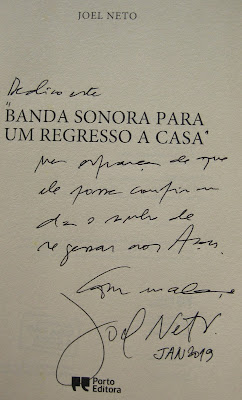 JOEL NETO
Dedico este
"BANDA SONORA PARA
UM REGRESSO A CASA"
na esperança de que
ele possa
da o sonho de
regressar aos
Com
Joel Neto
JAN 2019
Porto
Editora